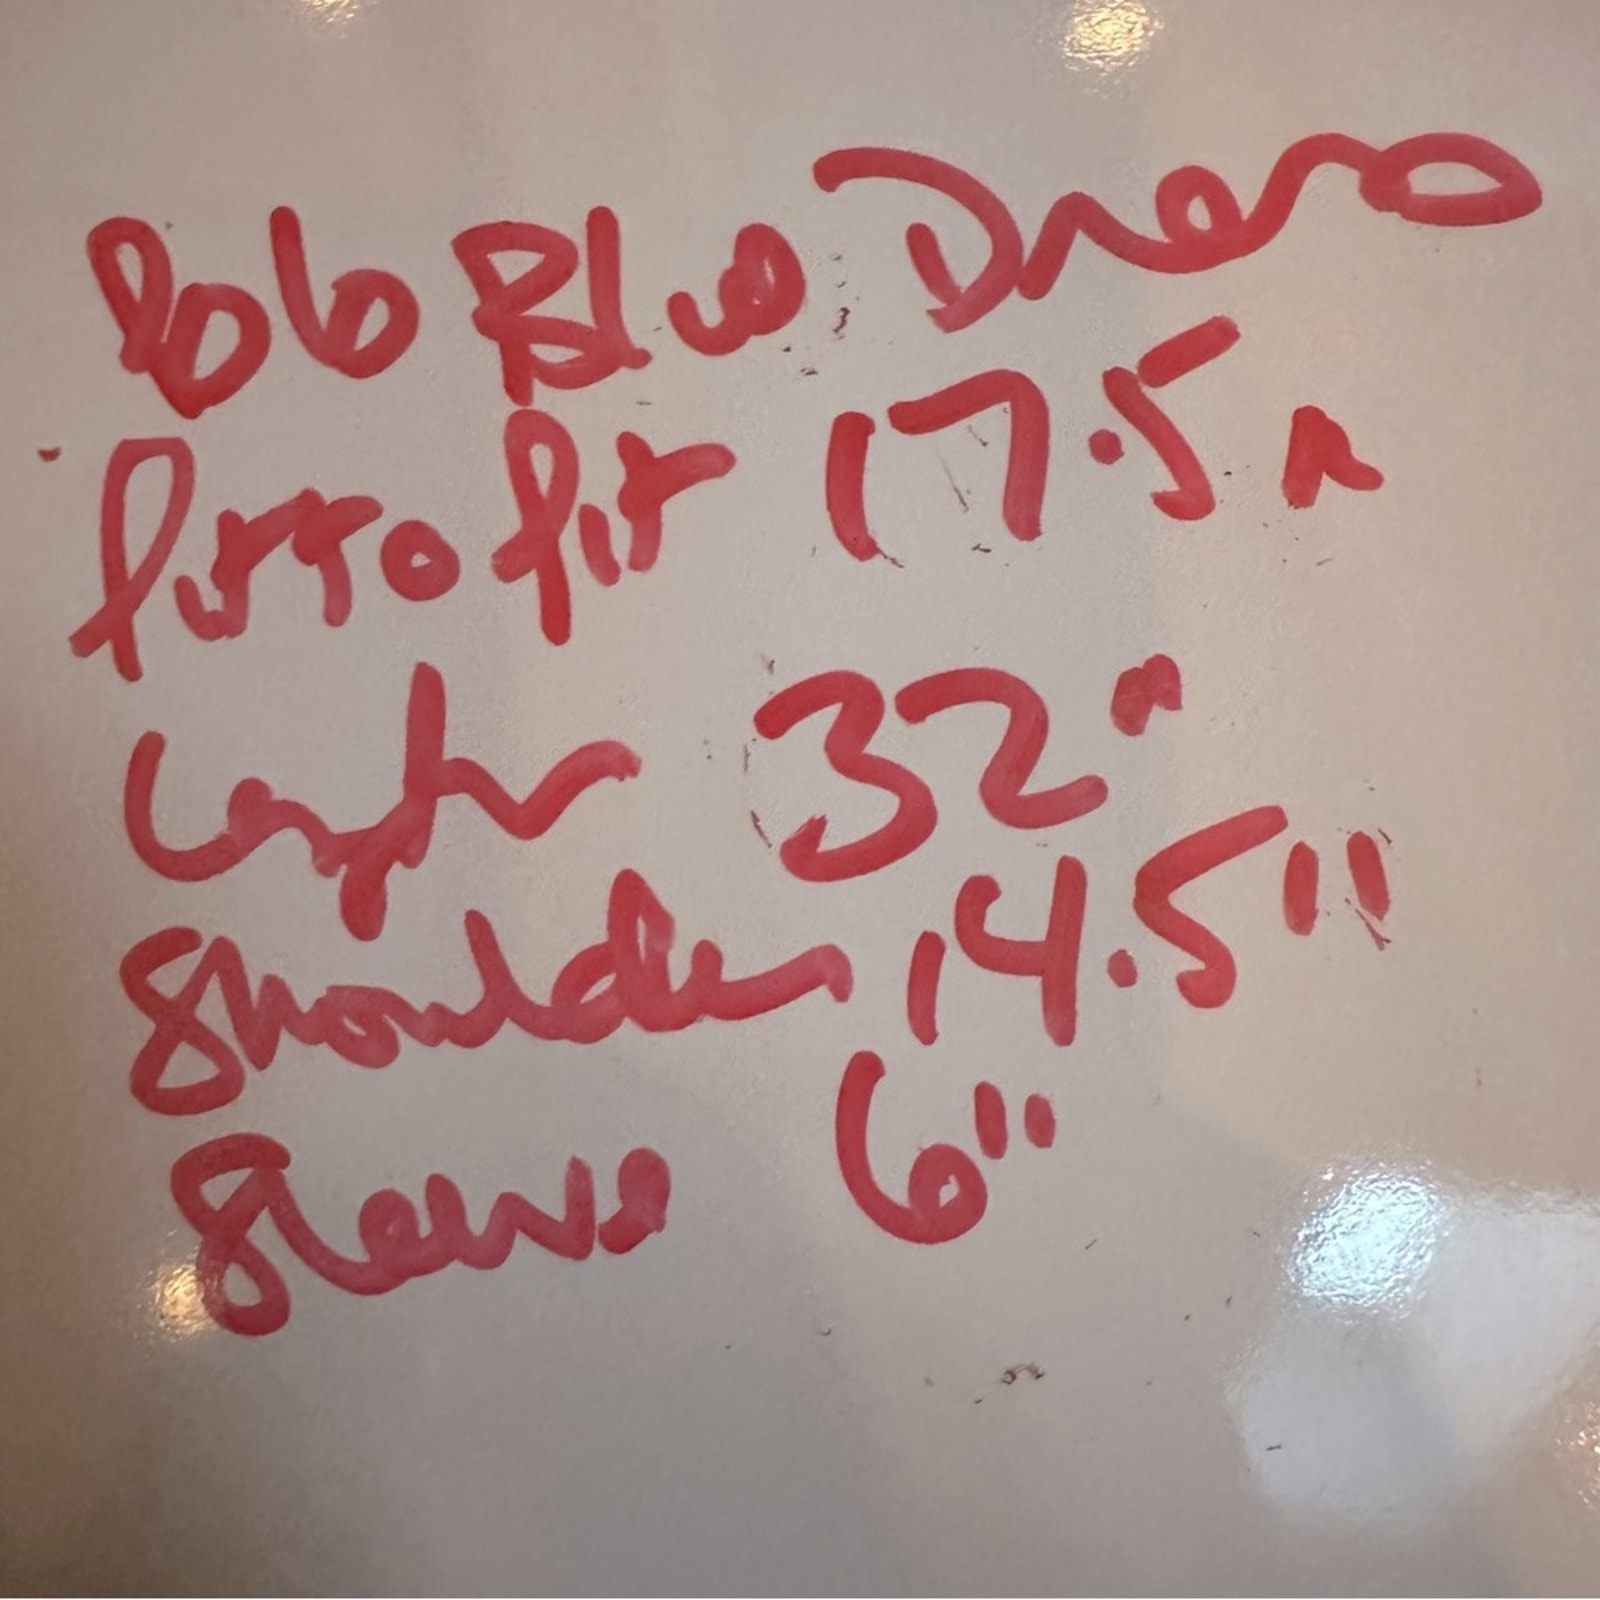 Bob Blue Dress
Pit to Pit 17.5"
Length 32"
Shoulder 14.5"
Sleeve 6"